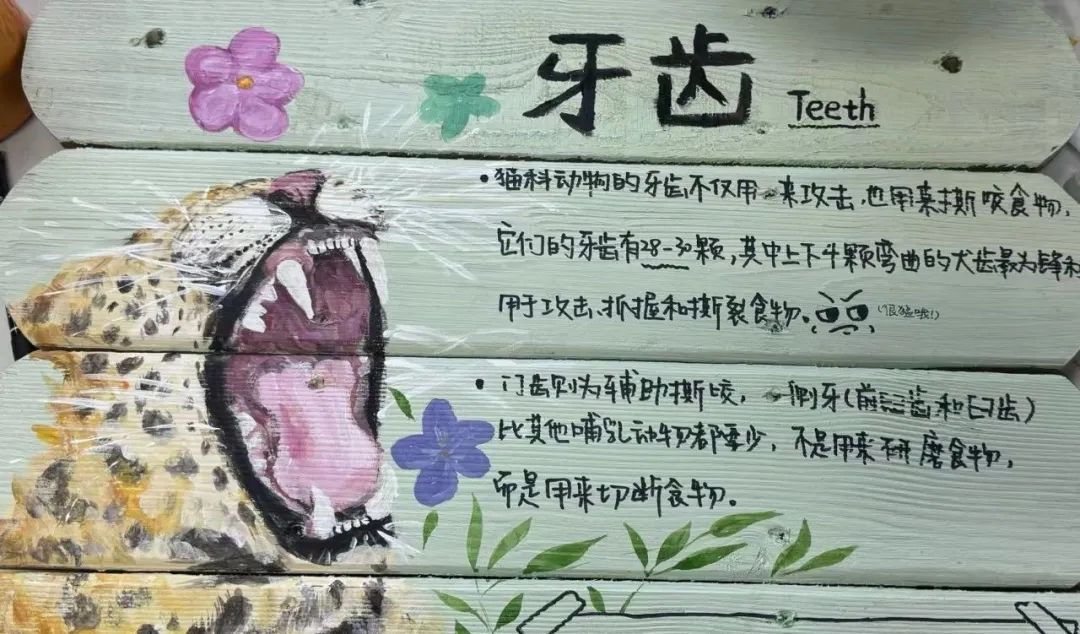 牙齿 Teeth
•猫科动物的牙齿不仅用来攻击,也用来撕咬食物,
它们的牙齿有28-30颗,其中上下4颗弯曲的犬齿最为锋利
用于攻击、抓握和撕裂食物。(很猛哦!)
•门齿则为辅助撕咬,侧牙(前臼齿和臼齿)
比其他哺乳动物都要少,不是用来研磨食物,
而是用来切断食物。